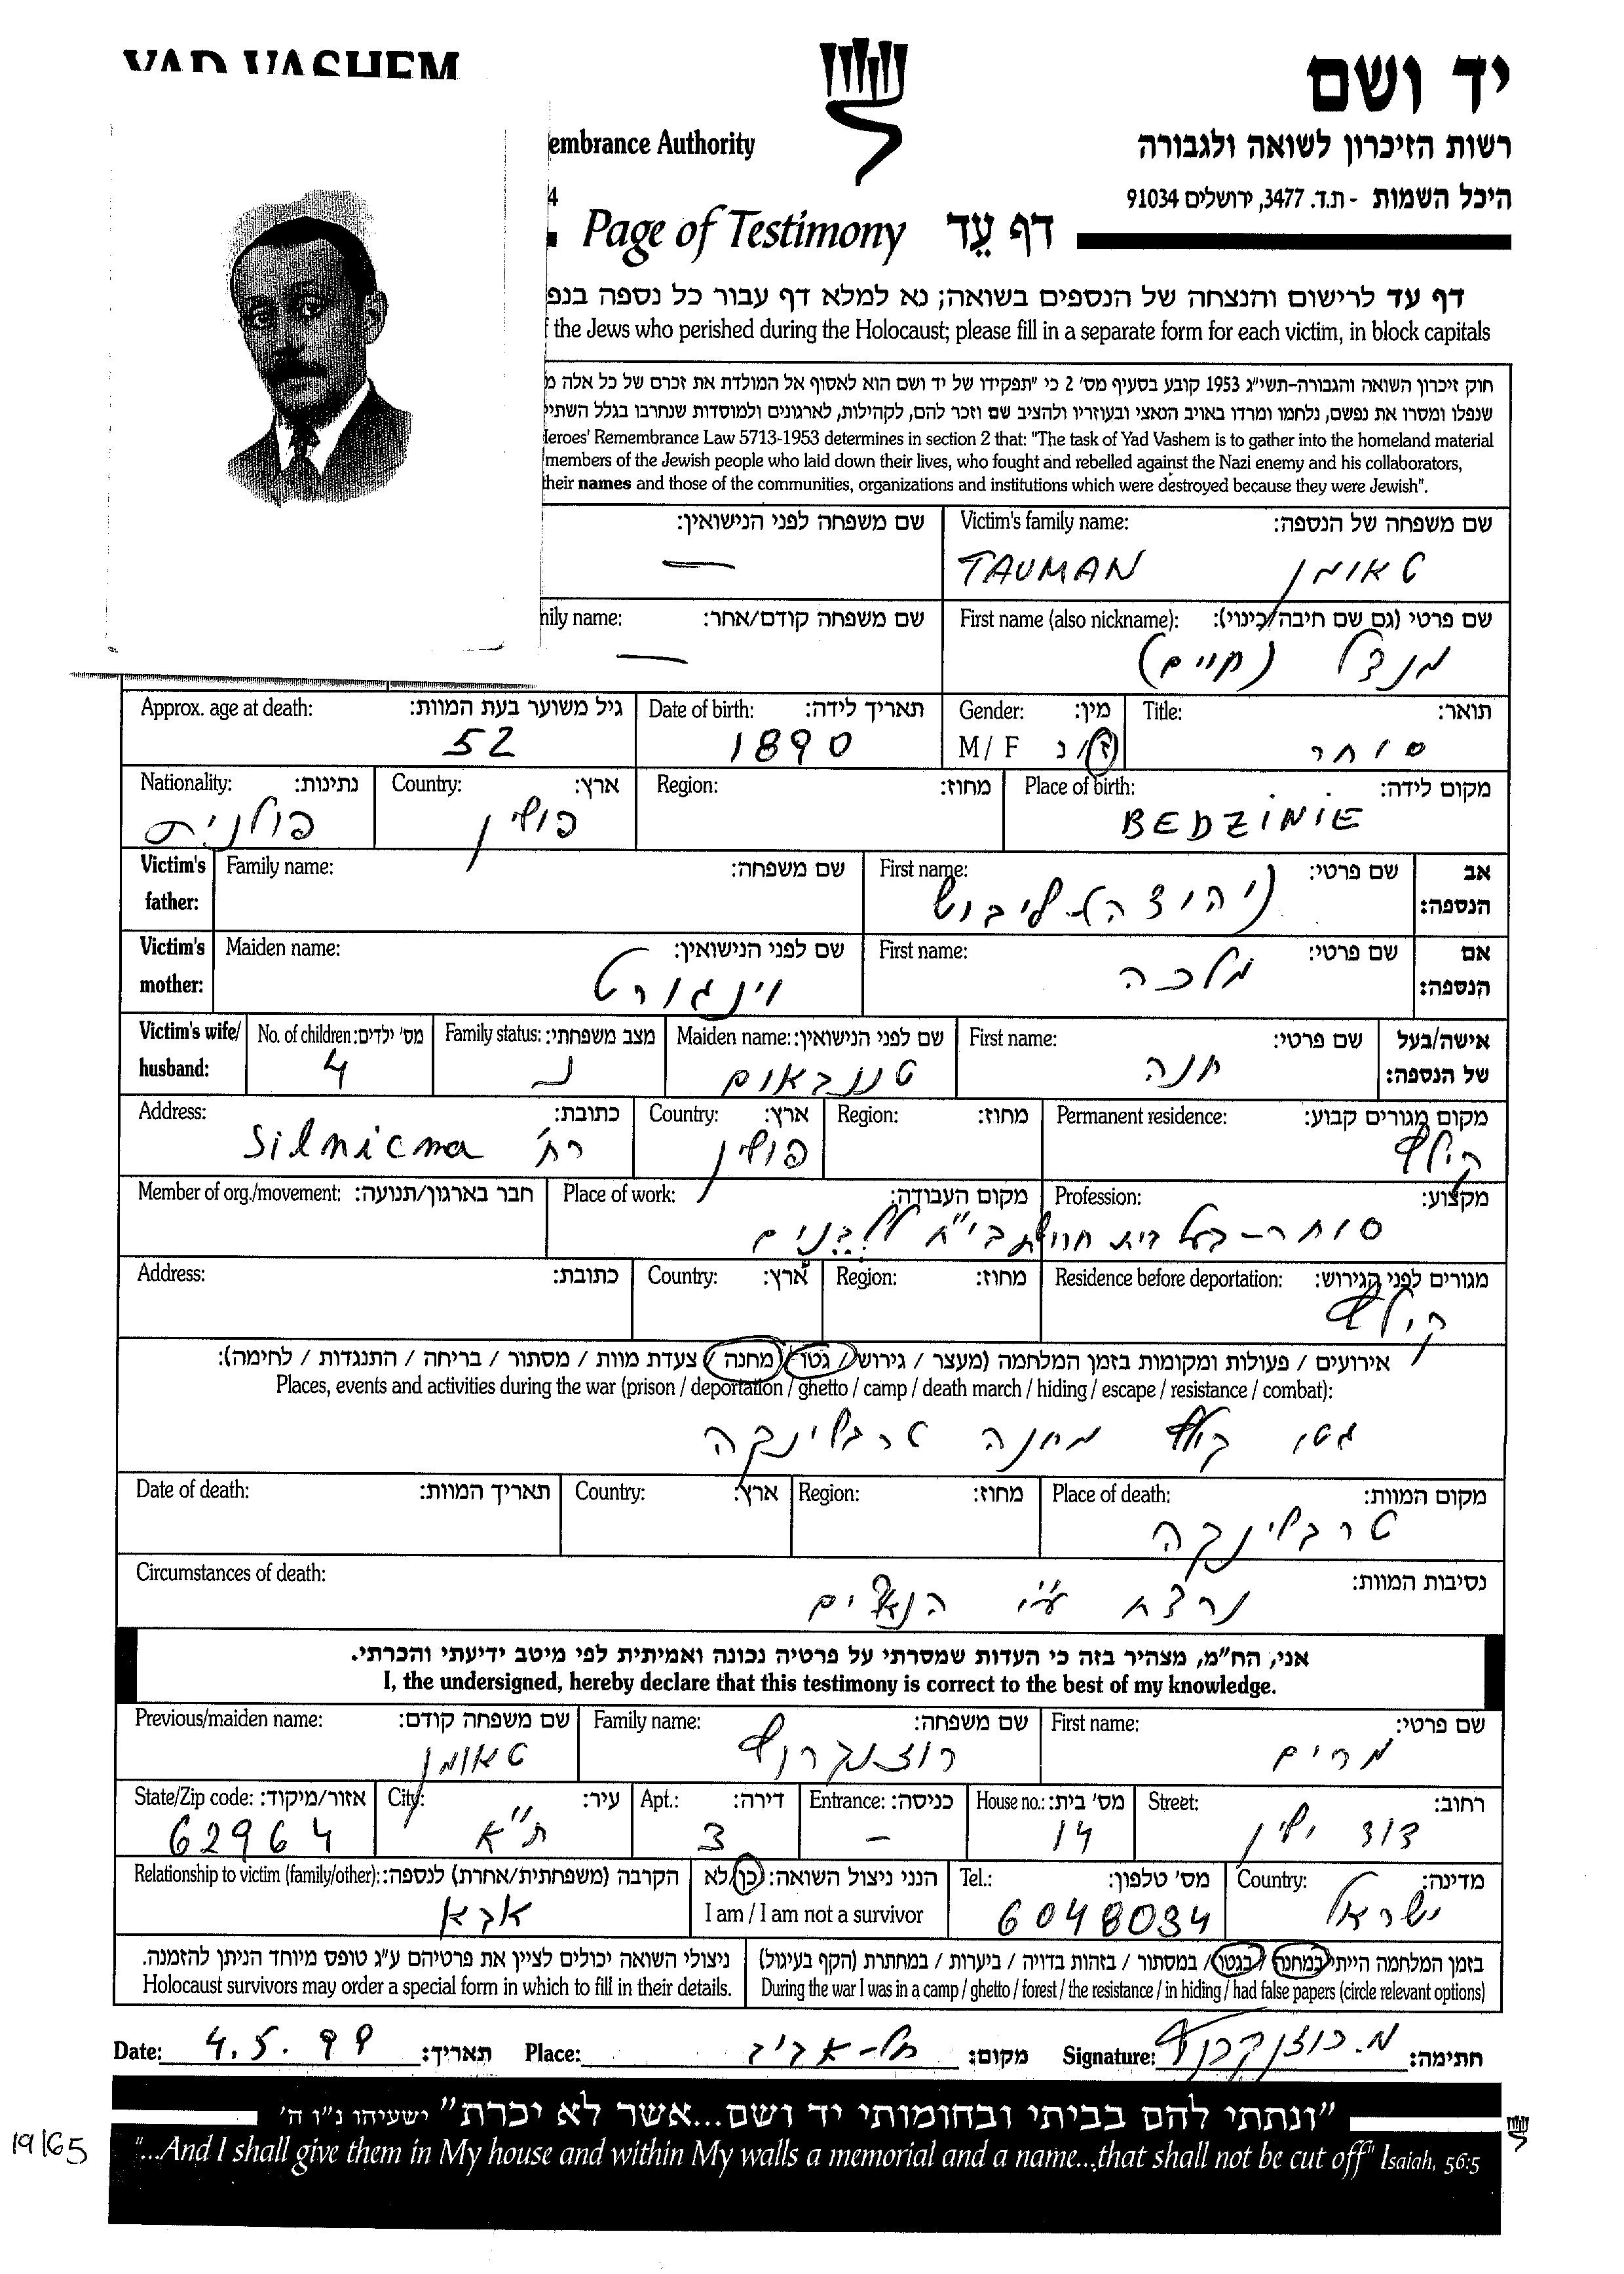 YAD VASHEM
יד ושם
embrance Authority
רשות הזיכרון לשואה ולגבורה
4
היכל השמות - ת.ד. 3477, ירושלים 91034
Page of Testimony דף עֵד
דף עד לרישום והנצחה של הנספים בשואה; נא למלא דף עבור כל נספה בנפ
f the Jews who perished during the Holocaust; please fill in a separate form for each victim, in block capitals
חוק זיכרון השואה והגבורה-תשי"ג 1953 קובע בסעיף מס' 2 כי "תפקידו של יד ושם הוא לאסוף אל המולדת את זכרם של כל אלה מ
שנפלו ומסרו את נפשם, נלחמו ומרדו באויב הנאצי ובעוזריו ולהציב שם וזכר להם, לקהילות, לארגונים ולמוסדות שנחרבו בגלל השתיי
Heroes' Remembrance Law 5713-1953 determines in section 2 that: "The task of Yad Vashem is to gather into the homeland material
members of the Jewish people who laid down their lives, who fought and rebelled against the Nazi enemy and his collaborators,
their names and those of the communities, organizations and institutions which were destroyed because they were Jewish".
שם משפחה של הנספה: Victim's family name: שם משפחה לפני הנישואין:
טאומן TAUMAN —
שם פרטי (גם שם חיבה/כינוי): First name (also nickname): שם משפחה קודם/אחר: mily name:
מנדל (חיים) —
תואר: Title: מין: Gender: תאריך לידה: Date of birth: גיל משוער בעת המוות: Approx. age at death:
סוחר ז/נ M / F 1890 52
מקום לידה: Place of birth: מחוז: Region: ארץ: Country: נתינות: Nationality:
BEDZINIE פולין פולנית
אב הנספה: שם פרטי: First name: שם משפחה: Family name: Victim's father:
יהודה לייבוש
אם הנספה: שם פרטי: First name: שם לפני הנישואין: Maiden name: Victim's mother:
מלכה וינגורט
אישה/בעל של הנספה: שם פרטי: First name: שם לפני הנישואין: Maiden name: מצב משפחתי: Family status: מס' ילדים: No. of children: Victim's wife/ husband:
חנה טננבאום נ 4
מקום מגורים קבוע: Permanent residence: מחוז: Region: ארץ: Country: כתובת: Address:
קילצה פולין רח' Silnicna
מקצוע: Profession: מקום העבודה: Place of work: חבר בארגון/תנועה: Member of org./movement:
סוחר - בעל בית חרושת ללבנים
מגורים לפני הגירוש: Residence before deportation: מחוז: Region: ארץ: Country: כתובת: Address:
קילצה
אירועים / פעולות ומקומות בזמן המלחמה (מעצר / גירוש / גטו / מחנה / צעדת מוות / מסתור / בריחה / התנגדות / לחימה):
Places, events and activities during the war (prison / deportation / ghetto / camp / death march / hiding / escape / resistance / combat):
גטו קילצה מחנה טרבלינקה
מקום המוות: Place of death: מחוז: Region: ארץ: Country: תאריך המוות: Date of death:
טרבלינקה
נסיבות המוות: Circumstances of death:
נרצח ע"י הנאצים
אני, הח"מ, מצהיר בזה כי העדות שמסרתי על פרטיה נכונה ואמיתית לפי מיטב ידיעתי והכרתי.
I, the undersigned, hereby declare that this testimony is correct to the best of my knowledge.
שם פרטי: First name: שם משפחה: Family name: שם משפחה קודם: Previous/maiden name:
מרים רוזנקרנץ טאומן
רחוב: Street: מס' בית: House no.: כניסה: Entrance: דירה: Apt.: עיר: City: אזור/מיקוד: State/Zip code:
דוד ילין 14 – 3 ת"א 62964
מדינה: Country: מס' טלפון: Tel.: הנני ניצול השואה: כן/לא הקרבה (משפחתית/אחרת) לנספה: Relationship to victim (family/other):
ישראל 6048034 I am / I am not a survivor אבא
בזמן המלחמה הייתי במחנה / בגטו / במסתור / בזהות בדויה / ביערות / במחתרת (הקף בעיגול) ניצולי השואה יכולים לציין את פרטיהם ע"ג טופס מיוחד הניתן להזמנה.
During the war I was in a camp / ghetto / forest / the resistance / in hiding / had false papers (circle relevant options) Holocaust survivors may order a special form in which to fill in their details.
חתימה: מ. רוזנקרנץ Signature: מקום: תל-אביב Place: תאריך: 4.5.99 Date:
"ונתתי להם בביתי ובחומותי יד ושם...אשר לא יכרת" ישעיהו נ"ו ה'
"...And I shall give them in My house and within My walls a memorial and a name...that shall not be cut off" Isaiah, 56:5
19/65